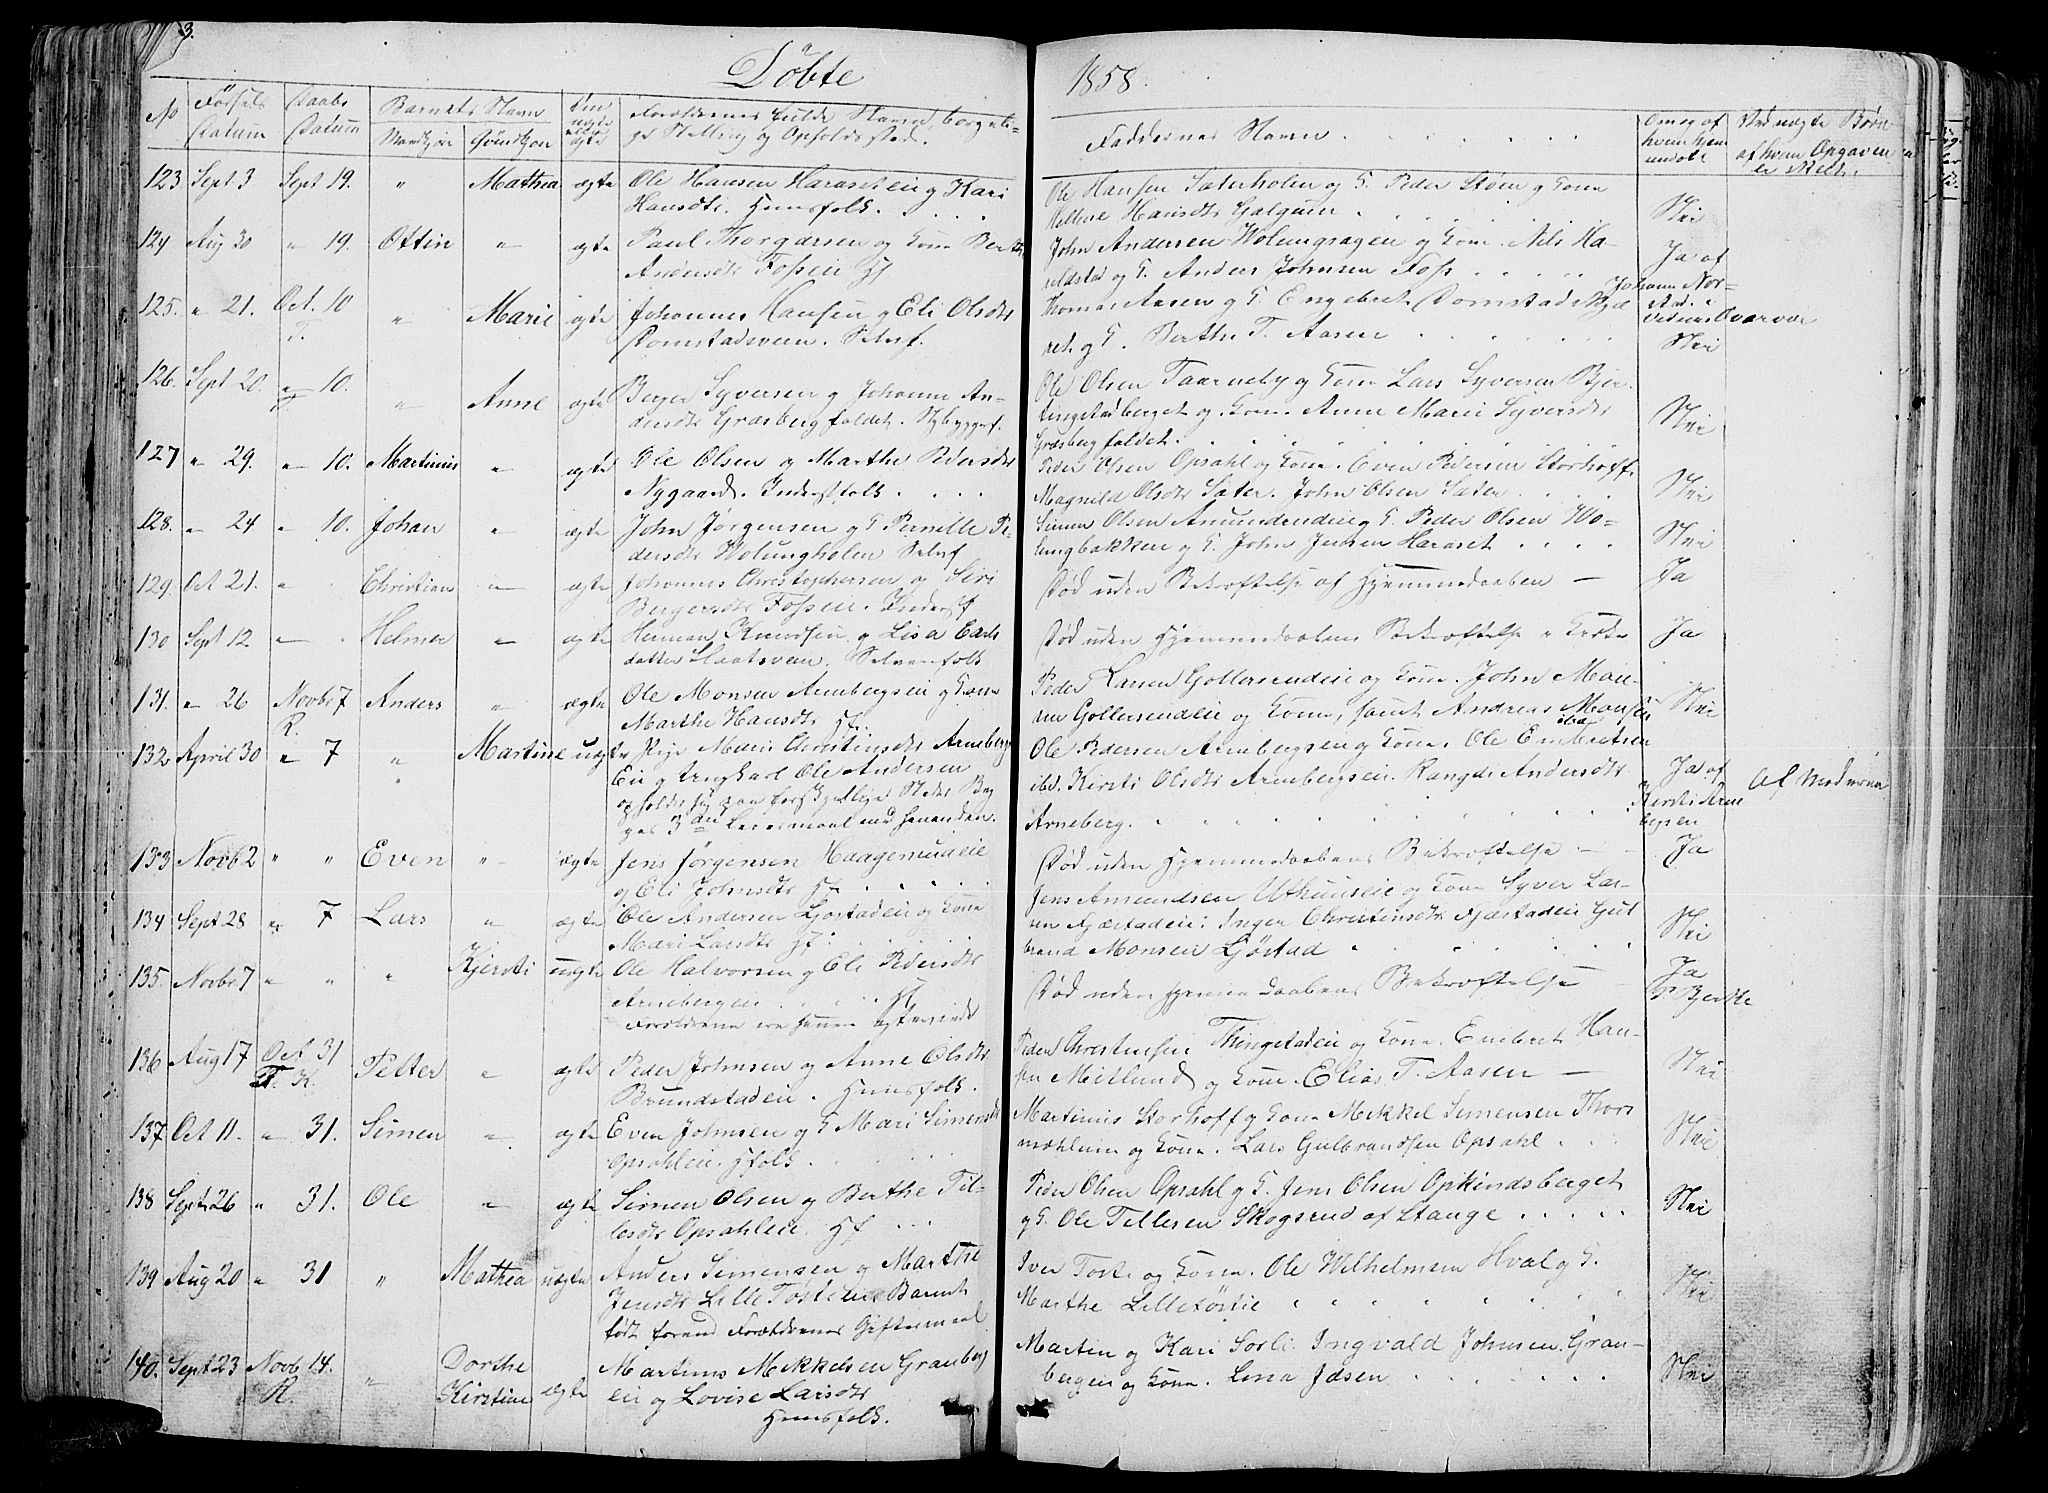 3.
Döbte 1858.
No Födsels Datum Daabs Datum Barnets Navn Mandkjøn Qvindkjøn Om ægte eller uægte Forældrenes fulde Navne, borgerlige Stilling og Opholdssted. Faddernes Navn Om og af hvem hjemmedøbt Ved uægte Børn af hvem Opgaven er Meldt.
123 Sept 3 Sept 19. " Mathea ægte Ole Hansen Haraseteie og Kari
Hansdtr. Huusfolk. . . . .
Ole Hansen Sæterholen og K. Peder Støen og Kone
Helline Hansdtr Galgum . . . Nei
124 Aug 30 " 19. Ottin " ægte Paul Thorgersen og Kone Berthe
Andersdtr Fosseie Hf
John Andersen Wolungsageie og Kone. Nils Ha-
raldstad og K. Anders Johnsen Foss . . . . Ja af
Johanne Nor-
125. " 21. Oct. 10 T. " Marie ægte Johannes Hansen og Eli Olsdtr
Domstadsveen. Selvf.
Thomas Aasen og K. Engebret Domstadskjæ
ret og K. Berthe T. Aasen . . . Nei
126. Sept 20. " 10. T " Anne ægte Berger Syversen og Johanne An-
dersdtr Græsbergfaldet. Nybyggerf.
Ole Olsen Taarneby og Kone Lars Syversen Bjer
tingstadberget og Kone. Anne Marie Syversdtr
Græsbergfaldet. . . . Nei
127 " 29. " 10. Martinus " ægte Ole Olsen og Marthe Pedersdtr
Nygaard. Inderstfolk. . . .
Peder Olsen Opsahl og Kone. Even Pedersen Storhoff.
Magnild Olsdtr Sæter. John Olsen Sæter . . . Nei
128. " 24 " 10. Johan " ægte John Jørgensen og K Pernille Pe-
dersdtr Wolungholen Selvf
Simen Olsen Amundendeie og K. Peder Olsen Wo-
lungbakken og K. John Jensen Haraset . . . . Nei
129. Oct 21. " Christian " ægte Johannes Christophersen og Siri
Bergersdtr Fosseie. Inderstf
Død uden Bekræftelse af Hjemmedaaben — Ja
130 Sept 12 " Helmer " ægte Herman Knudsen og Lisa Carls
datter Haatsveen. Selveierfolk
Død uden Hjemmedaabens Bekræftelse i Kirke Ja
131. " 26 Novb 7 R. Anders " ægte Ole Monsen Arnebergseie og Kone
Marthe Hansdtr Hf.
Peder Larsen Gollersrudeie og Kone. John Mon-
sen Gollersrudeie og Kone, samt Andreas Monsen ibd Nei
132 April 30 " 7 " Martine uægte Pige Marie Christiansdtr Arneberg
Eie og Ungkarl Ole Andersen
opholder sig paa forskjellige Steder Beg
ges 3die Leiermaal med hinanden.
Ole Pedersen Arnebergseie og Kone. Ole Embretsen
ibd. Kirsti Olsdtr Arnebergseie. Rangdi Andersdtr
Arneberg. . . . Ja af
Kirsti Arne
bergseie Af Moderen
133 Novb 2 " " Even " ægte Jens Jørgensen Haagenrudeie
og Eli Johnsdtr Hf. . . .
Død uden Hjemmedaabens Bekræftelse — Ja
134 Sept 28 " 7 Lars " ægte Ole Andersen Ljøstadeie og Kone
Mari Larsdtr Hf. . . .
Jens Amundsen Uthuuseie og Kone Syver Lar-
sen Kjæstadeie. Inger Christensdtr Kjæstadeie Gul
brand Monsen Ljøstad . . . Nei
135. Novb 7 " " " Kjersti uægte Ole Halvorsen og Eli Pedersdtr
Arnebergeie . . . Hf
Forældrene ere senere ægteviede
Død uden Hjemmedaabens Bekræftelse — Ja
136 Aug 17 Oct 31 T. K. Petter " ægte Peder Johnsen og Anne Olsdtr
Brundstadeie. Huusfolk.
Peder Christensen Thingstadeie og Kone. Embret Han-
sen Metlund og Kone. Elias T. Aasen — Nei
137 Oct 11. " 31. Simen " ægte Even Johnsen og K Mari Simensdtr
Opsahleie. Hfolk. . . .
Martinus Storhoff og Kone Mikkel Simensen Thors
mæhlum og Kone. Lars Gulbrandsen Opsahl . . . Nei
138 Sept 26 " 31. Ole " ægte Simen Olsen og Berthe Til-
lesdtr Opsahleie. Hf . . .
Peder Olsen Opsahl og K. Jens Olsen Opkindsberget
og K. Ole Tillesen Skogsrud af Stange . . . . . Nei
139 Aug 20 " 31 " Mathea uægte Anders Simensen og Marthe
Jensdtr Lille Tøsteeie Barnet
født forend Forældrenes Giftermaal
Iver Toste og Kone. Ole Wilhelmsen Hval og K.
Marthe Lilletöstie " " " Nei
140. Sept 23 Novb 14. R. " Dorthe
Kirstine ægte Martinus Mikkelsen Granberg
eie og Lovise Larsdtr
Huusfolk.
Martin og Kari Sorli. Ingvald Johnsen Gran-
bergeie og Kone. Lina Jdsen . . . Nei